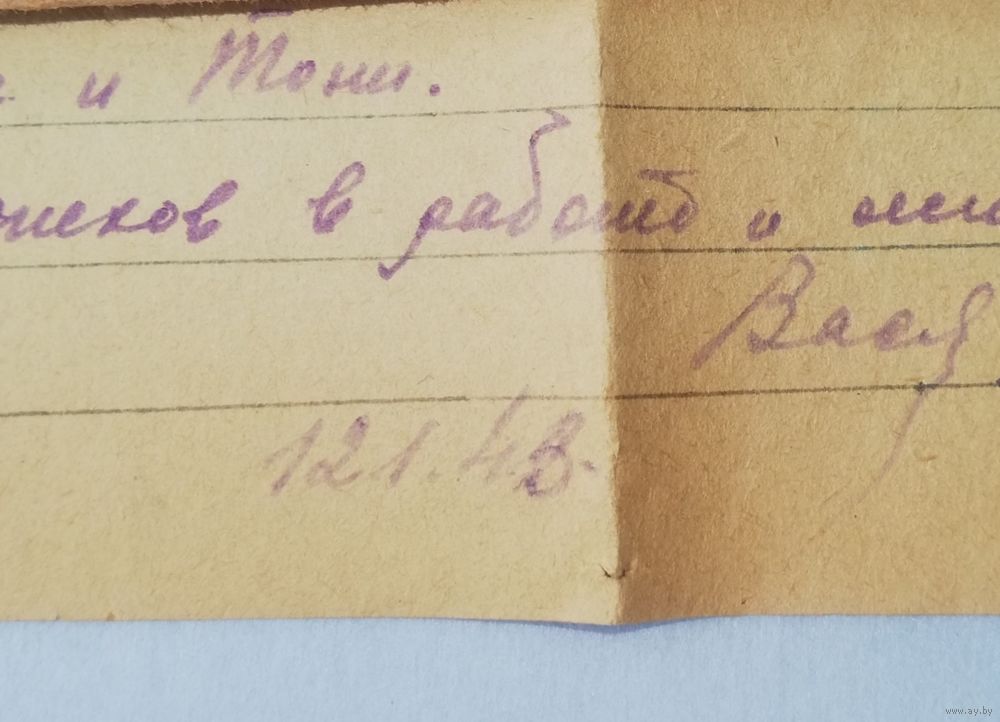 и Тони.
в работе и
Вася
12 1. 43.
www.ay.by